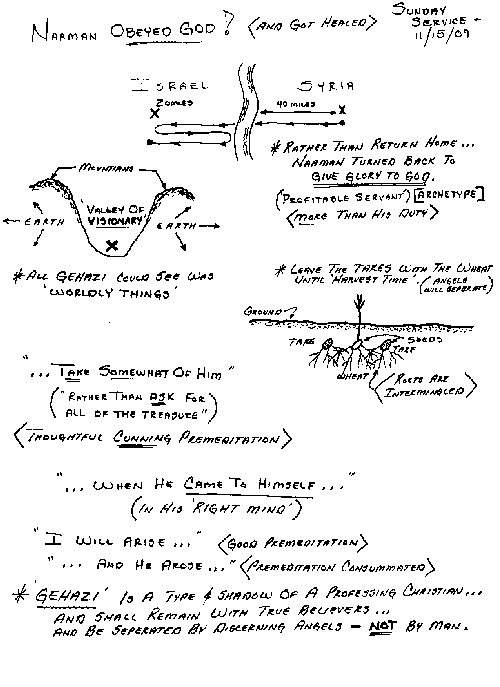 Narman Obeyed God? <And Got Healed>
Sunday
Service -
11/15/09
Israel Syria
20 miles 40 miles
* Rather Than Return Home...
Narman Turned Back To
Give Glory To God.
(Profitable Servant) [Archetype]
<More Than His Duty>
Mountians
Valley Of
Visionary
Earth Earth
* All Gehazi Could See Was
'Worldly Things'
* Leave The Tares With The Wheat
Until 'Harvest Time'. (Angels
Will Seperate)
Ground
Tare Seeds
Tare
Wheat
(Roots Are
Intermingled)
"... Take Somewhat Of Him"
("Rather Than Ask For
All Of The Treasure")
<Thoughtful Cunning Premeditation>
"... When He Came To Himself..."
(In His 'Right Mind')
"I Will Arise..." <Good Premeditation>
"... And He Arose..." <Premeditation Consummated>
* 'Gehazi' Is A Type & Shadow Of A Professing Christian...
And Shall Remain With True Believers...
And Be Seperated By Discerning Angels - Not By Man.